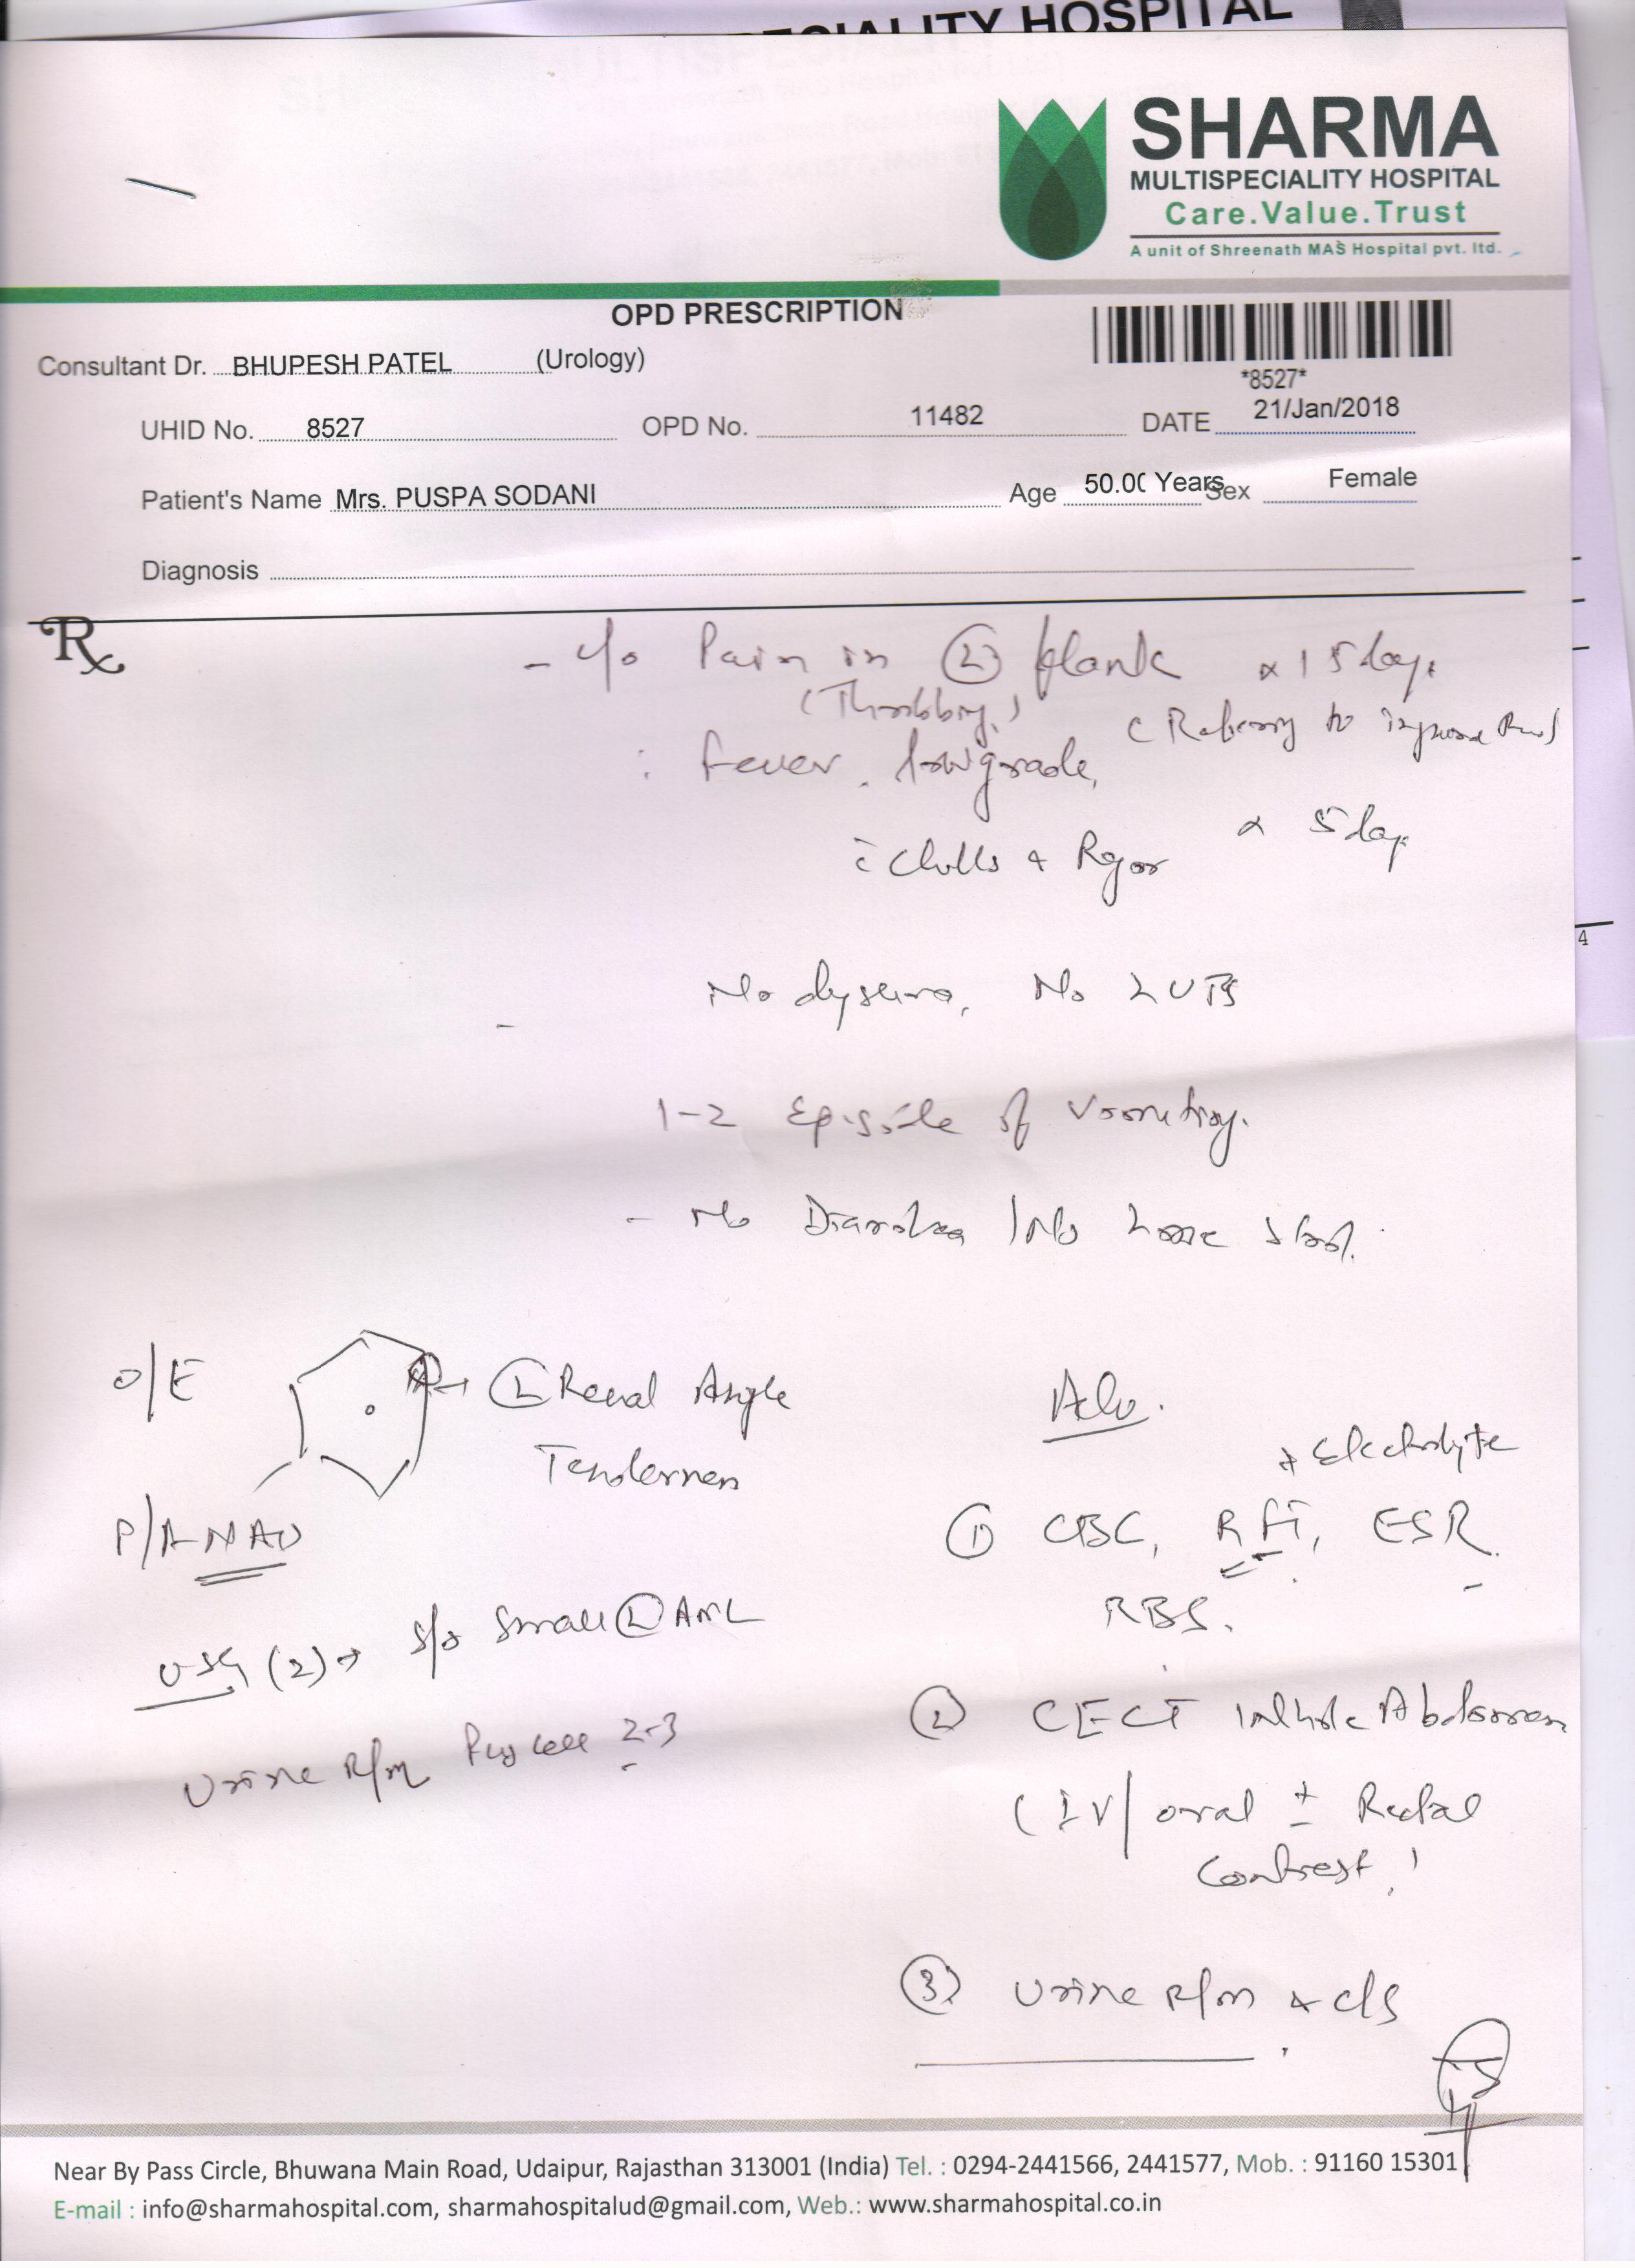 SPECIALITY HOSPITAL
SHARMA
MULTISPECIALITY HOSPITAL
Care.Value.Trust
A unit of Shreenath MAS Hospital pvt. ltd.
OPD PRESCRIPTION
*8527*
Consultant Dr. BHUPESH PATEL (Urology)
UHID No. 8527 OPD No. 11482 DATE 21/Jan/2018
Patient's Name Mrs. PUSPA SODANI Age 50.00 Years Sex Female
Diagnosis
Rx
- c/o Pain in (L) flank x 15 days
(Throbbing) (Referring to
: Fever. low grade,
c̄ chills & Rigor x 5 days
4
No dysuria, No LUTS
1-2 Episode of Vomiting.
- No Diarrhea / No loose stool.
O/E (L) Renal Angle
Tenderness
P/A NAD
USG (2) → s/o small (L) AML
Urine R/m Pus cell 2-3
Adv.
+ Electrolyte
(1) CBC, RFT, ESR
RBS.
(2) CECT Whole Abdomen
(IV/oral ± Rectal
Contrast)
(3) Urine R/m & c/s
Near By Pass Circle, Bhuwana Main Road, Udaipur, Rajasthan 313001 (India) Tel. : 0294-2441566, 2441577, Mob. : 91160 15301
E-mail : info@sharmahospital.com, sharmahospitalud@gmail.com, Web.: www.sharmahospital.co.in